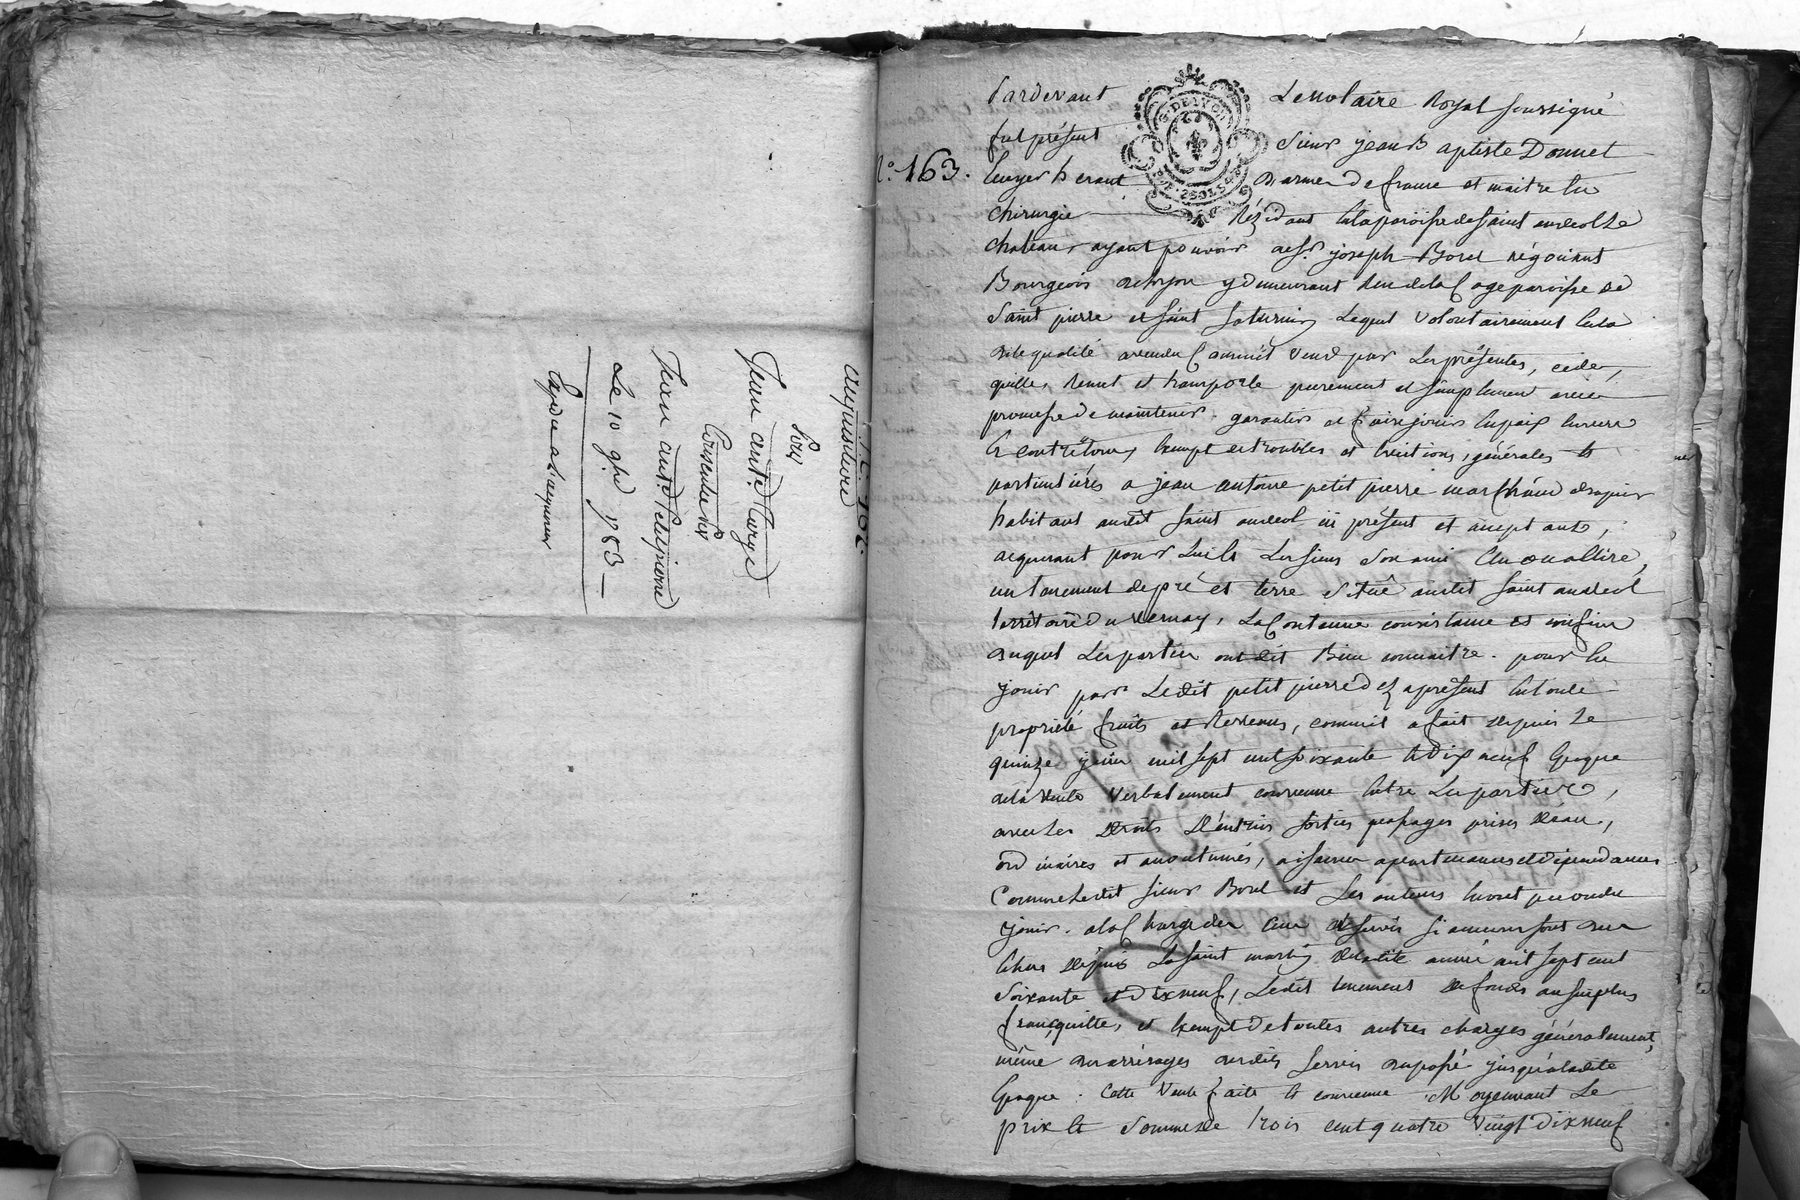 N.º 162.
acquis
Jean ant.e
Consentie
Jean ant.e petitpierre
Le 10 9bre 1783
Expédié a l'acquereur
N.º 163.
Pardevant Le notaire Royal soussigné
fut présent Sieur jean Baptiste Donnet
Ecuyer herant Darmes de france et maitre En
chirurgie Rézidant En la paroisse de saint andeol Le
chateau, ayant pouvoir de Sr. joseph Borel négociant
Bourgeois de Lyon y demeurant Rue de la Cage paroisse de
Saint pierre et saint saturnin, Lequel volontairement En la
dite qualité a vendu Comme il vend par Les présentes, cede,
quitte, Remet et transporte purement et simplement avec
promesse de maintenir garantir et faire jouir En paix Envers
Et contre tous, Exempt de troubles et Evictions, générales Et
particulières a jean antoine petit pierre marchand
habitant audit saint andeol ici présent et acceptant,
acquerant pour Lui Et Les siens
un tenement de pré et terre Situé audit saint andeol
territoire du vernay, La Contenue consistance et confins
duquel Les parties ont dit Bien connaitre. pour En
jouir par Ledit petit pierre dez apresent En toute
propriété fruits et Revenus, comme il a fait depuis Le
quinze mil sept cent soixante et Dix neuf Epoque
de la vente verbalement convenue Entre Les parties,
avec Les Droits D'entrées sorties passages prises D'eau,
ordinaires et accoutumés, aisances apartenances et dépendances
Comme Ledit sieur Borel et Ses auteurs En ont pu ou du
jouir. a la Charge des Cens et servis si aucuns sont dus
Echus depuis La saint martin de ladite année mil sept cent
Soixante et dix neuf, Ledit tenement de fonds au surplus
franc, quitte, et Exempt de toutes autres charges généralement,
même des arrérages desdits servis du passé jusqu'à ladite
Epoque. Cette vente faite Et convenue Moyennant Le
prix Et Somme de trois cent quatre vingt dix neuf